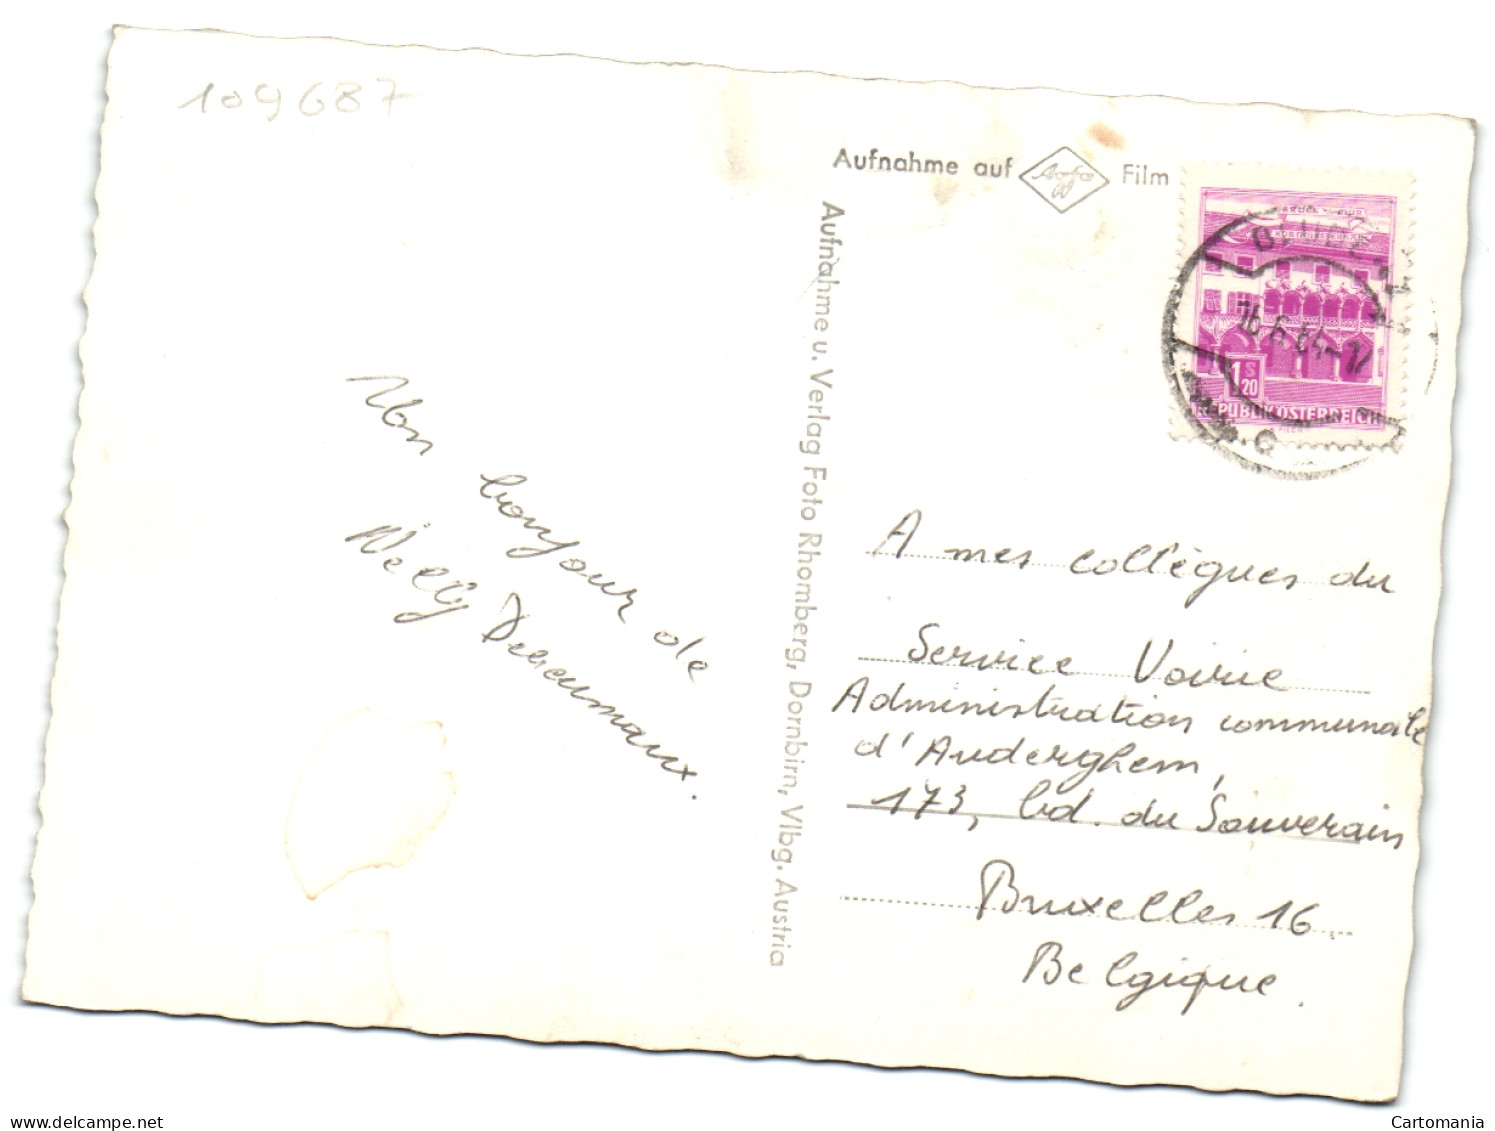 109687
Aufnahme auf Agfa Film
Aufnahme u. Verlag Foto Rhomberg, Dornbirn, Vlbg. Austria
1 S 20
REPUBLIK ÖSTERREICH
16.6.64-17
Mon bonjour de
Nelly
A mes collègues du
Service Voirie
Administration communale
d'Auderghem,
173, bd. du Souverain
Bruxelles 16.
Belgique.
Cartomania